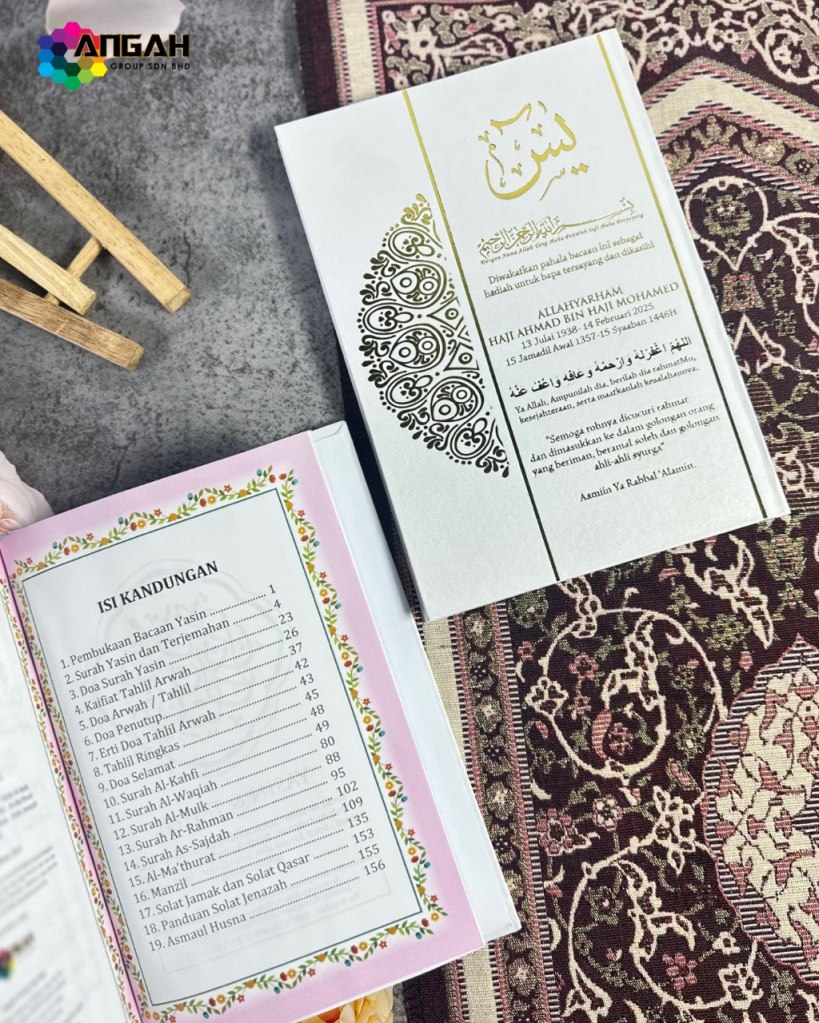 ANGAH
GROUP SDN BHD
يس
بسم الله الرحمن الرحيم
Dengan Nama Allah Yang Maha Pemurah lagi Maha Penyayang
Diwakafkan pahala bacaan ini sebagai
hadiah untuk bapa tersayang dan dikasihi
ALLAHYARHAM
HAJI AHMAD BIN HAJI MOHAMED
13 Julai 1938- 14 Februari 2025
15 Jamadil Awal 1357-15 Syaaban 1446H
اللهم اغفر له وارحمه وعافه واعف عنه
Ya Allah, Ampunilah dia, berilah dia rahmatMu,
kesejahteraan, serta maafkanlah kesalahannya.
"Semoga rohnya dicucuri rahmat
dan dimasukkan ke dalam golongan orang
yang beriman, beramal soleh dan golongan
ahli-ahli syurga"
Aamiin Ya Rabbal 'Alamin.
ISI KANDUNGAN
1. Pembukaan Bacaan Yasin ................ 1
2. Surah Yasin dan Terjemahan ........... 4
3. Doa Surah Yasin ................ 23
4. Kaifiat Tahlil Arwah ................ 26
5. Doa Arwah / Tahlil ................ 37
6. Doa Penutup ................ 42
7. Erti Doa Tahlil Arwah ................ 43
8. Tahlil Ringkas ................ 45
9. Doa Selamat ................ 48
10. Surah Al-Kahfi ................ 49
11. Surah Al-Waqiah ................ 80
12. Surah Al-Mulk ................ 88
13. Surah Ar-Rahman ................ 95
14. Surah As-Sajdah ................ 102
15. Al-Ma'thurat ................ 109
16. Manzil ................ 135
17. Solat Jamak dan Solat Qasar ......... 153
18. Panduan Solat Jenazah ................ 155
19. Asmaul Husna ................ 156